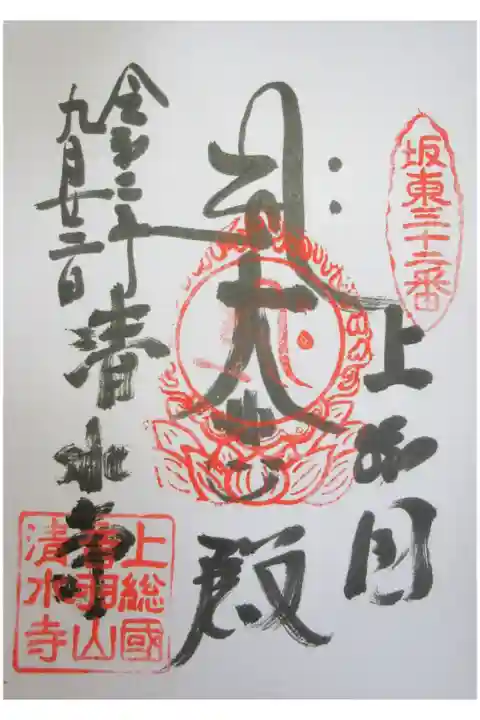 坂東三十二番
上総国
大悲殿
令和二年
九月廿二日
清水寺
上総國
音羽山
清水寺